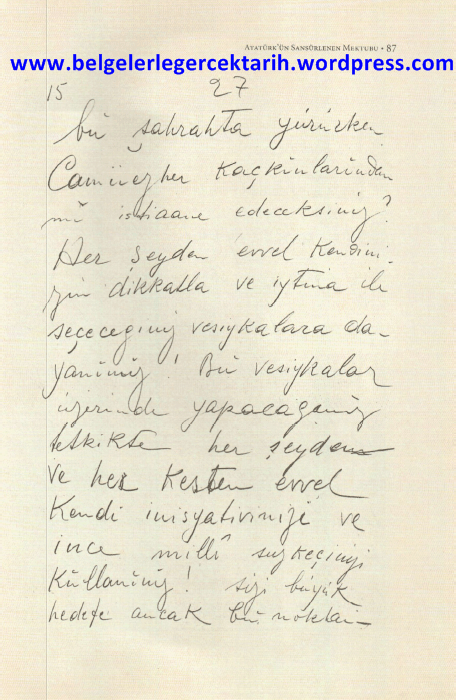 ATATÜRK'ÜN SANSÜRLENEN MEKTUBU • 87
www.belgelerlegercektarih.wordpress.com
15 27
bu şahrahta yürürken
Camiüezher kaçkınlarından
mı istiaane edeceksiniz?
Her şeyden evvel kendini-
zin dikkatla ve iytina ile
seçeceginiz vesiykalara da-
yanınız! Bu vesiykalar
üzerinde yapacağınız
tetkikte her şeyden
ve her kesten evvel
kendi inisyativinizi ve
ince millî süzkeçinizi
kullanınız! sizi büyük
hedefe ancak bu noktai-